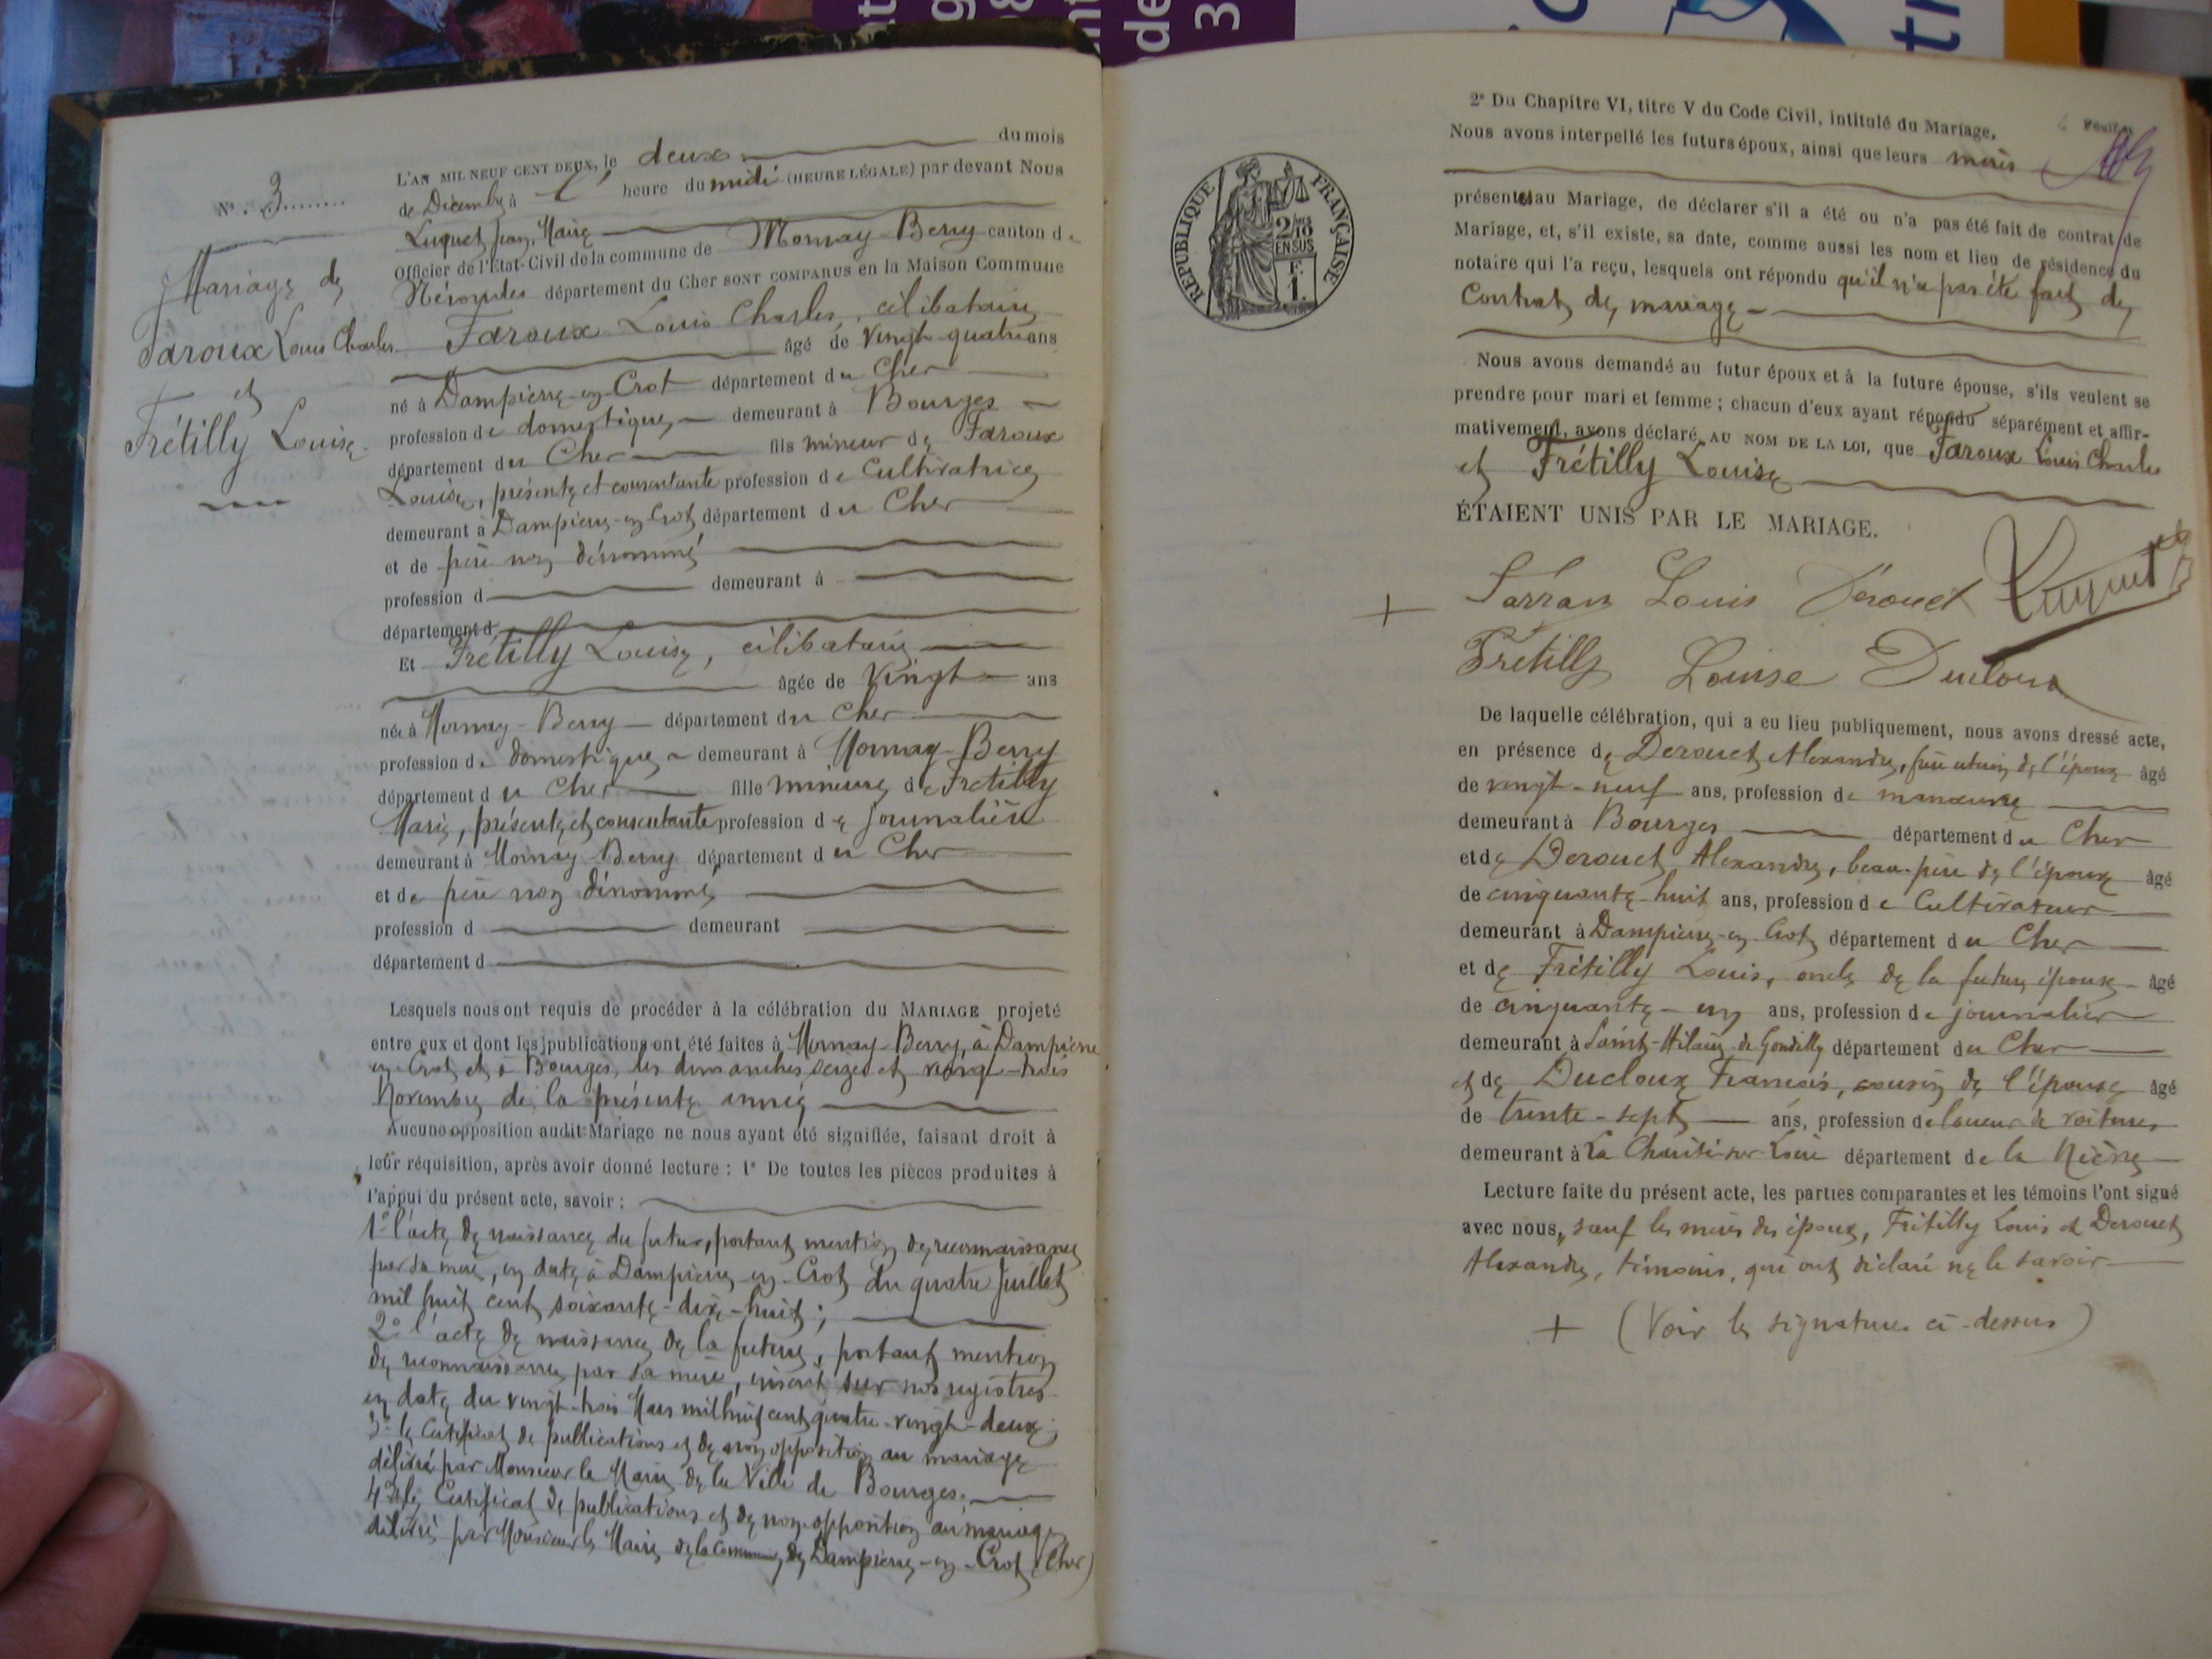 N° 3
Mariage de
Faroux Louis Charles
et
Frétilly Louise
L'AN MIL NEUF CENT DEUX, le deux du mois
de Décembre à l' heure du midi (HEURE LÉGALE) par devant Nous
Luquet Jean, Maire
Officier de l'Etat-Civil de la commune de Mornay-Berry canton de
Nérondes département du Cher SONT COMPARUS en la Maison Commune
Faroux Louis Charles, célibataire
âgé de vingt-quatre ans
né à Dampierre-en-Crot département du Cher
profession de domestique demeurant à Bourges
département du Cher fils mineur de Faroux
Louise, présente et consentante profession de Cultivatrice
demeurant à Dampierre-en-Crot département du Cher
et de père non dénommé
profession d demeurant à
département d
Et Frétilly Louise, célibataire
âgée de vingt ans
née à Mornay-Berry département du Cher
profession de domestique demeurant à Mornay-Berry
département du Cher fille mineure de Frétilly
Marie, présente et consentante profession de journalière
demeurant à Mornay-Berry département du Cher
et de père non dénommé
profession d demeurant
département d
Lesquels nous ont requis de procéder à la célébration du MARIAGE projeté
entre eux et dont les publications ont été faites à Mornay-Berry, à Dampierre
en-Crot et à Bourges, les dimanches seize et vingt-trois
Novembre de la présente année
Aucune opposition audit Mariage ne nous ayant été signifiée, faisant droit à
leur réquisition, après avoir donné lecture : 1° De toutes les pièces produites à
l'appui du présent acte, savoir :
1° l'acte de naissance du futur, portant mention de reconnaissance
par sa mère, en date à Dampierre-en-Crot du quatre Juillet
mil huit cent soixante-dix-huit ;
2° l'acte de naissance de la future, portant mention
de reconnaissance par sa mère, inscrit sur nos registres
en date du vingt-trois Mars mil huit cent quatre-vingt-deux ;
3° le Certificat de publications et de non opposition au mariage
délivré par Monsieur le Maire de la Ville de Bourges.
4° le Certificat de publications et de non-opposition au mariage
délivré par Monsieur le Maire de la commune de Dampierre-en-Crot (Cher)
REPUBLIQUE FRANÇAISE
2/10 EN SUS
F. 1.
Feuillet
2° Du Chapitre VI, titre V du Code Civil, intitulé du Mariage.
Nous avons interpellé les futurs époux, ainsi que leurs mères
présentes au Mariage, de déclarer s'il a été ou n'a pas été fait de contrat de
Mariage, et, s'il existe, sa date, comme aussi les nom et lieu de résidence du
notaire qui l'a reçu, lesquels ont répondu qu'il n'a pas été fait de
Contrat de mariage
Nous avons demandé au futur époux et à la future épouse, s'ils veulent se
prendre pour mari et femme ; chacun d'eux ayant répondu séparément et affir-
mativement, avons déclaré AU NOM DE LA LOI, que Faroux Louis Charles
et Frétilly Louise
ÉTAIENT UNIS PAR LE MARIAGE.
+ Louis Dérouet Luquet
Frétilly Louise Ducloux
De laquelle célébration, qui a eu lieu publiquement, nous avons dressé acte,
en présence de Derouet Alexandre, frère utérin de l'époux âgé
de vingt-neuf ans, profession de manœuvre
demeurant à Bourges département du Cher
et de Derouet Alexandre, beau-père de l'époux âgé
de cinquante-huit ans, profession de Cultivateur
demeurant à Dampierre-en-Crot département du Cher
et de Frétilly Louis, oncle de la future épouse âgé
de cinquante-un ans, profession de journalier
demeurant à Saint-Hilaire de Gondilly département du Cher
et de Ducloux François, cousin de l'épouse âgé
de trente-sept ans, profession de loueur de voitures
demeurant à La Charité-sur-Loire département de la Nièvre
Lecture faite du présent acte, les parties comparantes et les témoins l'ont signé
avec nous, sauf les mères des époux, Frétilly Louis et Derouet
Alexandre, témoins, qui ont déclaré ne le savoir
+ (Voir les signatures ci-dessus)